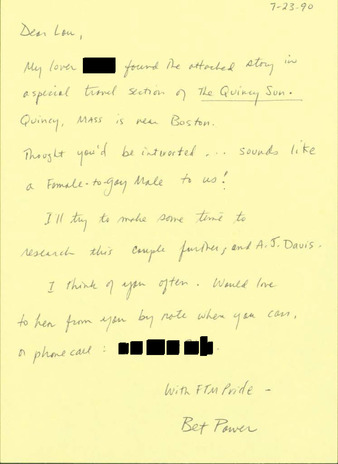 7-23-90
Dear Lou,
My lover found the attached story in
a special travel section of The Quincy Sun.
Quincy, Mass is near Boston.
Thought you'd be interested... sounds like
a Female-to-Gay Male to us!
I'll try to make some time to
research this couple further, and A.J. Davis.
I think of you often. Would love
to hear from you by note when you can,
or phone call:
With FTM Pride -
Bet Power